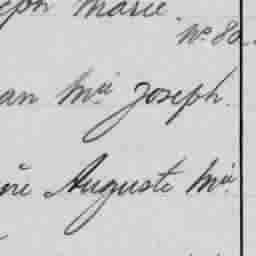 eph Marie
No 80
an Mie Joseph
Auguste Mie